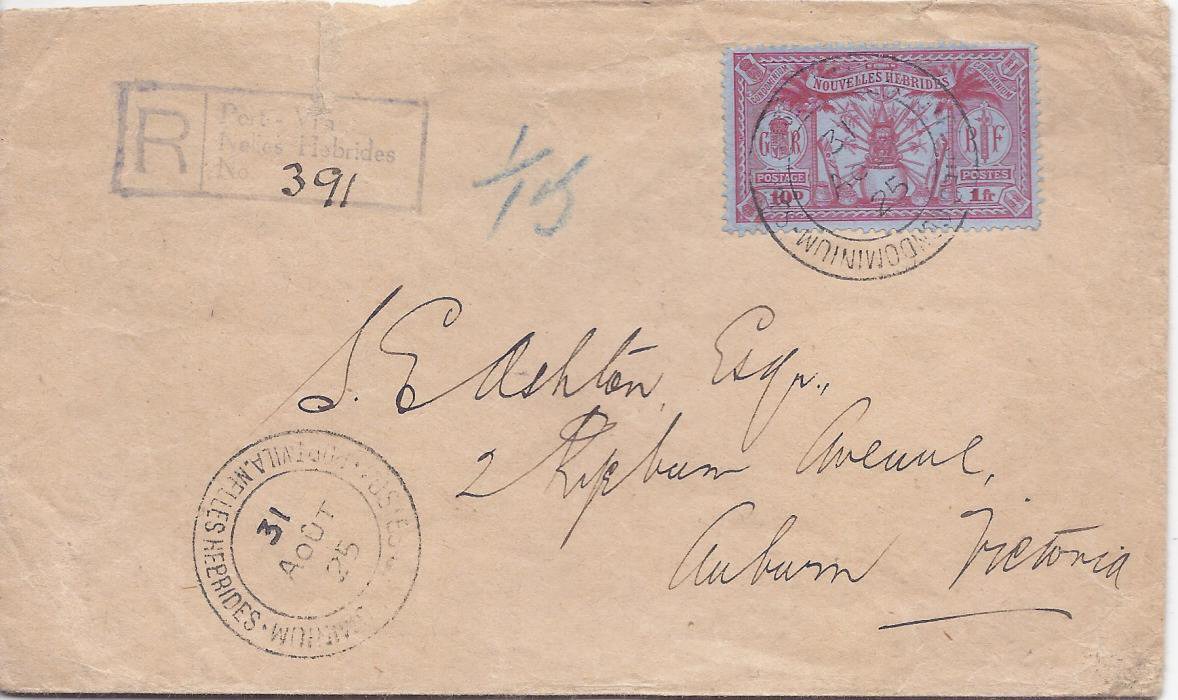 R
Port-Vila
Nelles Hebrides
No 391
1/15
NOUVELLES HEBRIDES
CONDOMINIUM
CONDOMINIUM
G R
R F
POSTAGE
POSTES
10D
1fr
31
AOUT
25
CONDOMINIUM
S. E Ashton, Esqr.,
2 Avenue,
Auburn Victoria
PORT VILA. NELLES HEBRIDES.
31
AOUT
25